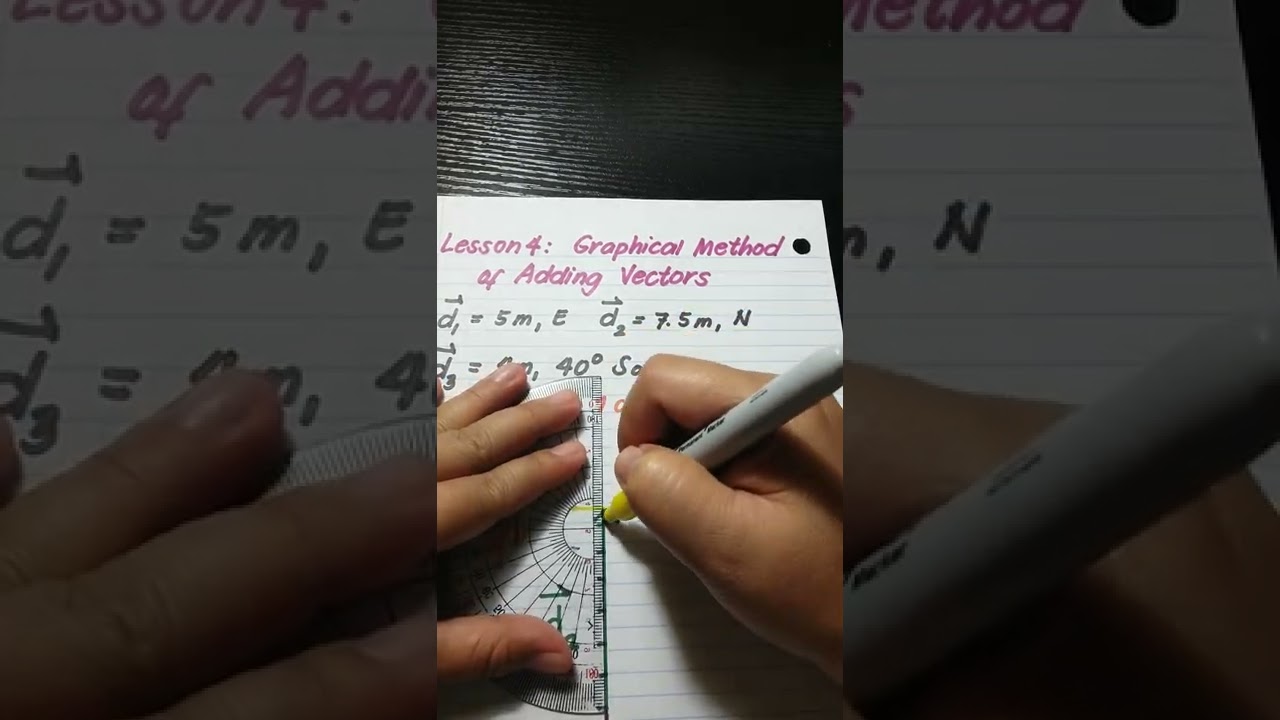 Lesson 4: Graphical Method
of Adding Vectors
d₁ = 5 m, E d₂ = 7.5 m, N
d₃ = m, 40° So